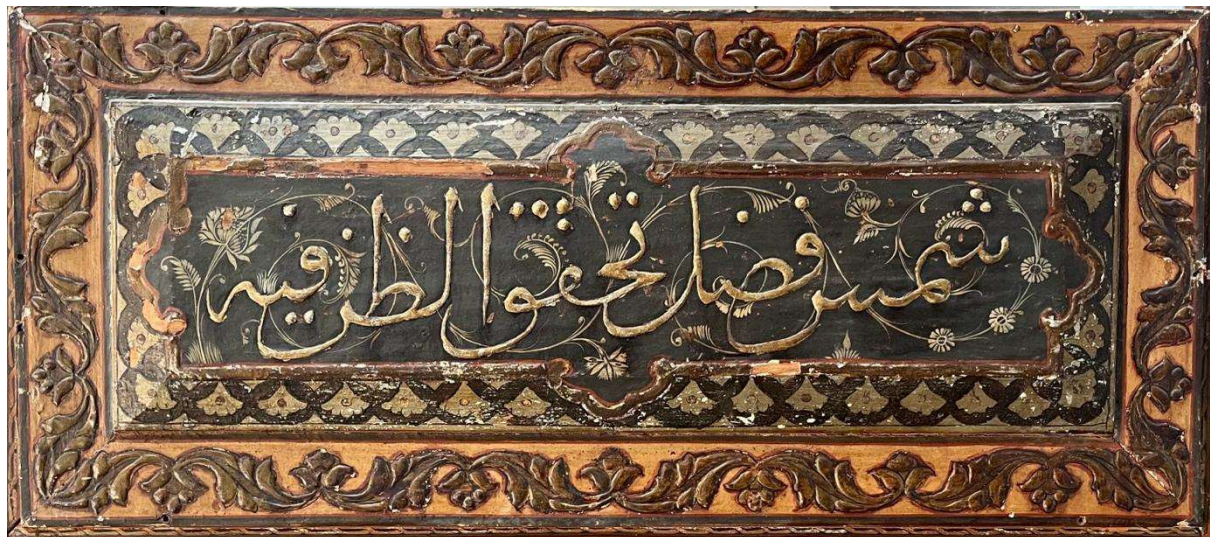 شمس فضل تحقق الظن فيه